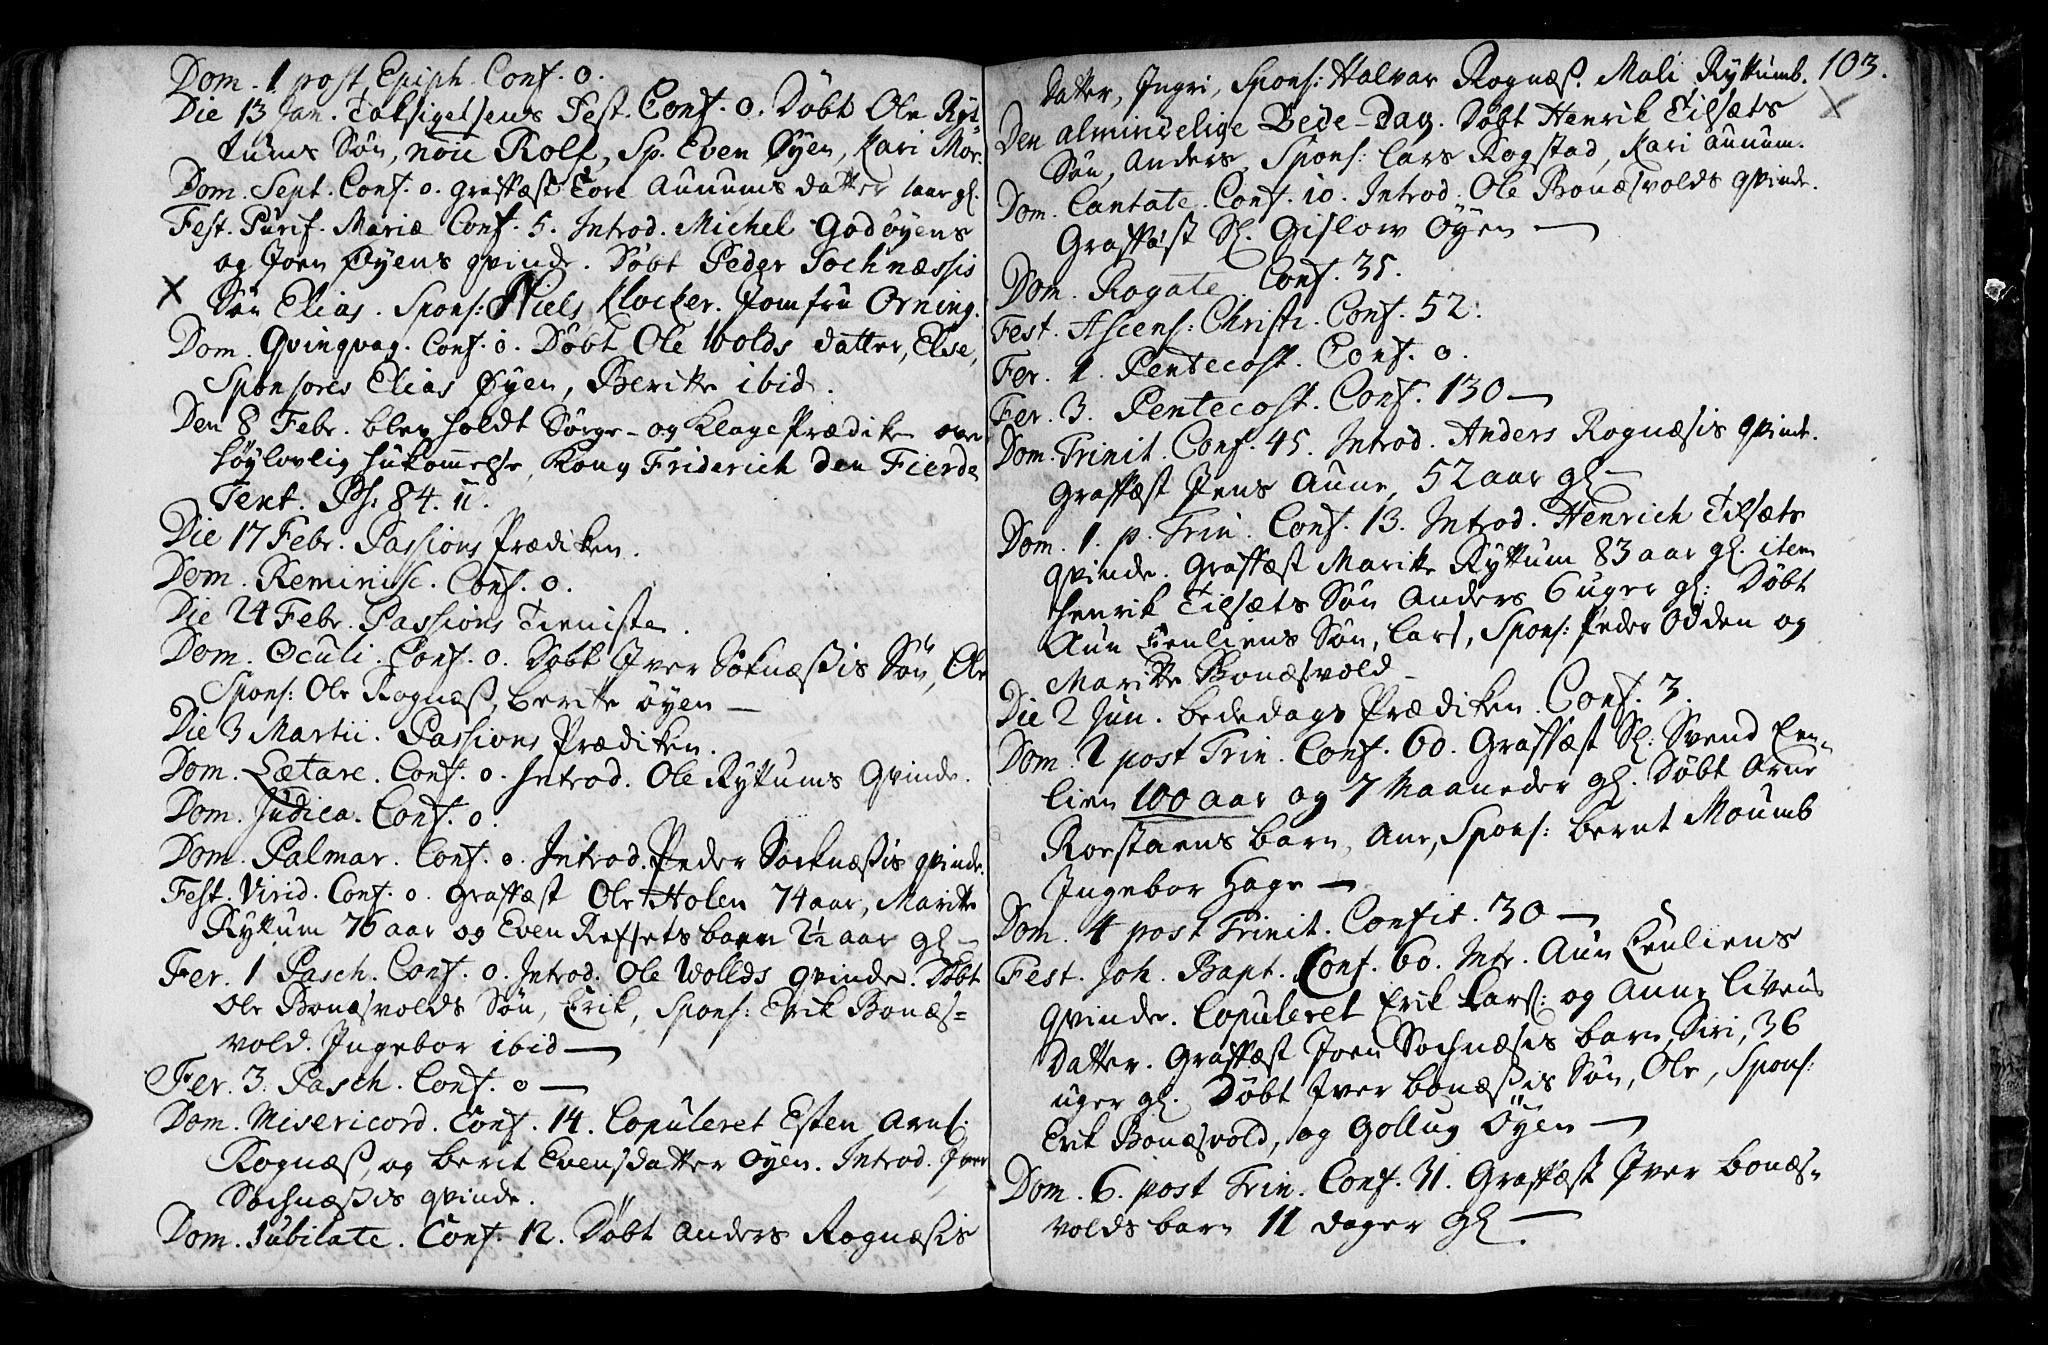 Dom. 1 post Epiph. Conf. 0.
Die 13 Jan. Taksigelsens Fest. Conf. 0. Døbt Ole Ryt-
kums Søn, noie Rolf, Sp. Even Øyen, Kari Mor.
Dom. Sept. Conf. 0. Graffæst Tore Auuums datter 1 aar gl.
Fest. Purif. Mariæ Conf. 5. Introd. Michel Godøyens
og Joen Øyens qvinde. Døbt Peder Sochnæssis
X Søn Elias. Spons: Niels Klocker. Jomfru Orning.
Dom. Qvinqvag. Conf. 0. Døbt Ole Wolds datter, Else,
Sponsores Elias Øyen, Beritte ibid.
Den 8 Febr. blev holdt Sørge- og Klage Prædiken over
høylovlig hukommelse, Kong Friderich den Fierde
Text. Ps: 84. 11.
Die 17 Febr. Passions Prædiken.
Dom. Reminisc. Conf. 0.
Die 24 Febr. Passions Tieniste.
Dom. Oculi. Conf. 0. Døbt Iver Soknæssis Søn, Ole
Spons: Ole Rognæss, berite øyen —
Die 3 Martii. Passions Prædiken.
Dom. Lætare. Conf. 0. Introd. Ole Rykkums Qvinde.
Dom. Judica. Conf. 0.
Dom. Palmar. Conf. 0. Introd. Peder Socknæssis qvinde.
Fest. Virid. Conf. 0. Graffæst Ole Holen 74 aar, Maritte
Rykkum 76 aar og Even Refsets barn 2½ aar gl —
Fer. 1 Pasch. Conf. 0. Introd. Ole Wollds qvinde. Døbt
Ole Bonæsvolds Søn, Erik, Spons: Erik Bonæs-
vold. Ingebor ibid —
Fer. 3. Pasch. Conf. 0 —
Dom. Misericord. Conf. 14. Copuleret Esten Arnss:
Rognæss, og berit Evensdatter Øyen. Introd. Iver
Sochnæssis qvinde.
Dom. Jubilate. Conf. 12. Døbt Anders Rognæssis
103.
datter, Ingri, Spons: Halvar Rognæss. Mali Rykkumb.
X
Den almindelige Bede-Dag. Døbt Henrik Tilsæts
Søn, Anders, Spons: Lars Rogstad, Kari auuum.
Dom. Cantate. Conf. 10. Introd: Ole Bonæsvolds qvinde.
Graffæst Sl. Gislow Øyen —
Dom. Rogate. Conf. 35.
Fest. Ascens: Christi. Conf. 52:
Fer. 1. Pentecost. Conf. 0.
Fer. 3. Pentecost. Conf. 130 —
Dom. Trinit. Conf. 45. Introd. Anders Rognæsis qvinde.
Graffæst Jens Aune, 52 aar gl —
Dom. 1. p. Trin. Conf. 13. Introd. Henrich Tilsæts
qvinde. Graffæst Maritte Rykkum 83 aar gl. item
Henrik Tilsæts Søn Anders 6 uger gl: Døbt
Aun Eenliens Søn, Lars, Spons: Peder Odden og
Maritte Bonæsvold —
Die 2 Jun. bededags Prædiken. Conf. 3.
Dom. 2 post Trin. Conf. 60. Graffæst Sl: Svend Een-
lien 100 aar og 7 Maaneder gl. Døbt Arne
Rorstaens barn, Ane, Spons: bernt Moumb
Ingebor Hage —
Dom. 4 post Trinit. Confit. 30 —
Fest. Joh. Bapt. Conf. 60. Intr. Aun Eenliens
qvinde. Copuleret Erik Larss: og Anne Livens
datter. Graffæst Joen Sochnæsis barn, Siri, 36
uger gl. Døbt Iver bonæssis Søn, Ole, Spons:
Erik Bonæsvold, og Gollug Öyen —
Dom. 6. post Trin. Conf. 31. Graffæst Iver bonæs-
volds barn 11 dager gl —